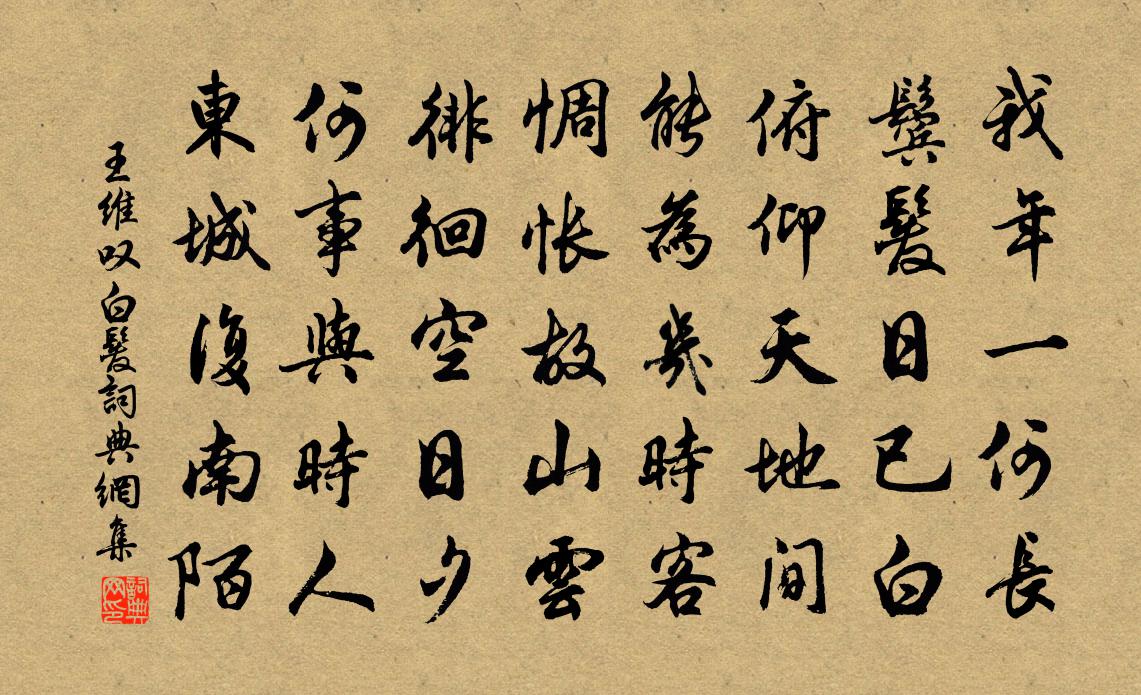 我年一何長
鬢髮日已白
俯仰天地間
能為幾時客
惆悵故山雲
徘徊空日夕
何事與時人
東城復南陌
王維叹白髮詞典網集
詞典网印